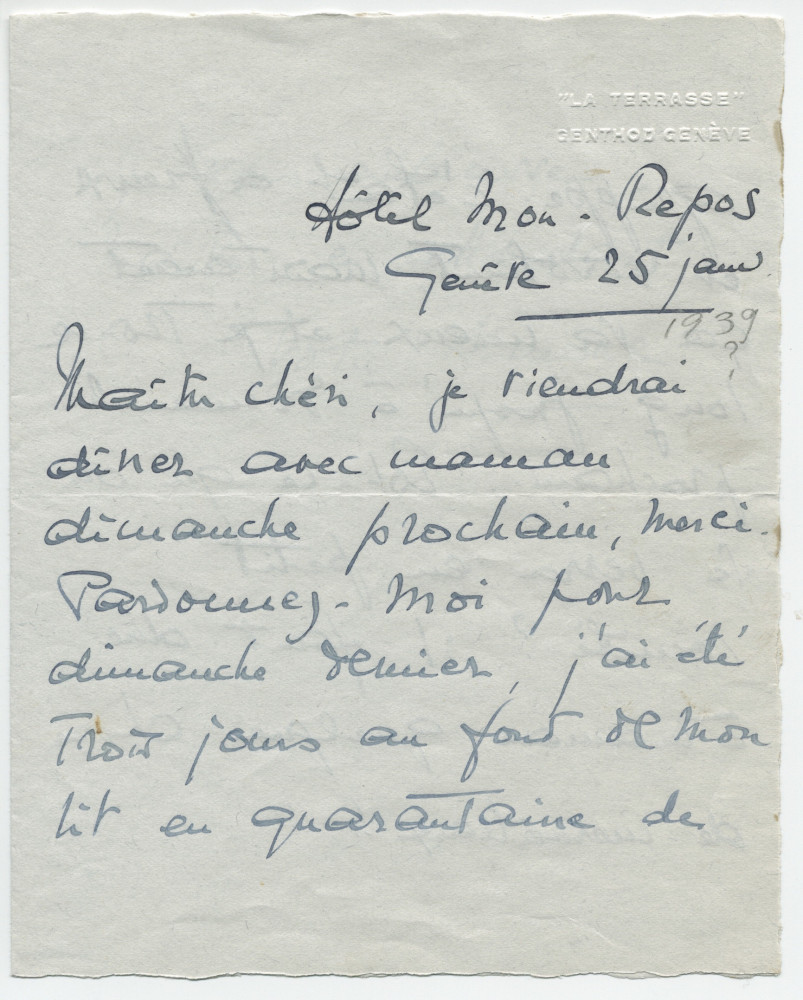 "LA TERRASSE"
GENTHOD GENÈVE
Hôtel Mon-Repos
Genève 25 janv
1939
?
Maître chéri, je viendrai
dîner avec maman
dimanche prochain, merci.
Pardonnez-moi pour
dimanche dernier, j'ai été
trois jours au fond de mon
lit en quarantaine de